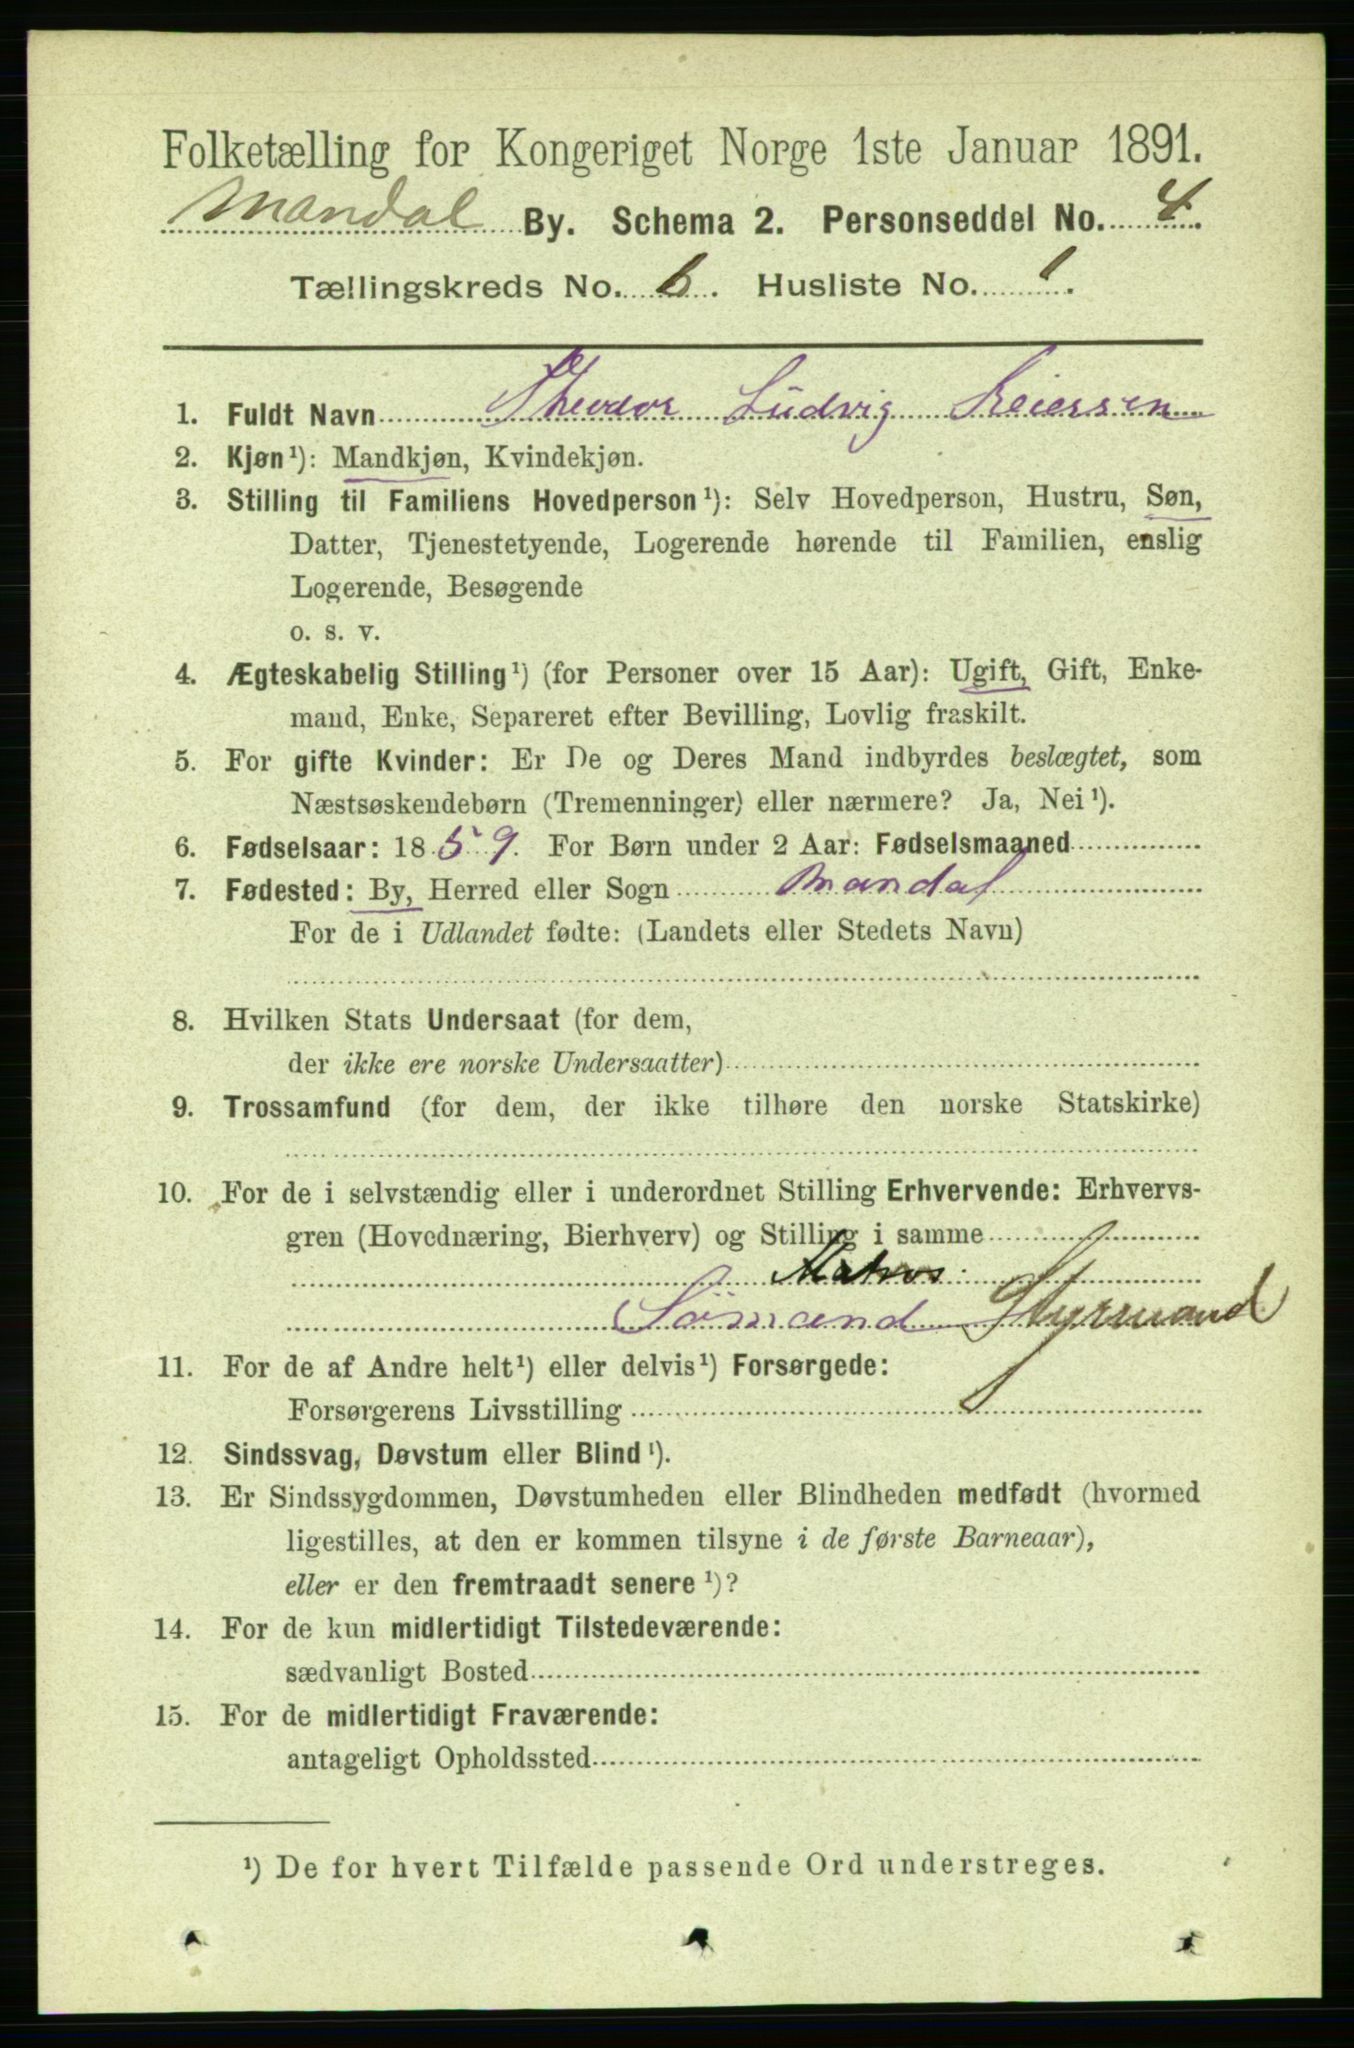 Folketælling for Kongeriget Norge 1ste Januar 1891.
Mandal By. Schema 2. Personseddel No. 4.
Tællingskreds No. 6. Husliste No. 1.
1. Fuldt Navn Theodor Ludvig Reiersen
2. Kjøn¹): Mandkjøn, Kvindekjøn.
3. Stilling til Familiens Hovedperson¹): Selv Hovedperson, Hustru, Søn,
Datter, Tjenestetyende, Logerende hørende til Familien, enslig
Logerende, Besøgende
o. s. v.
4. Ægteskabelig Stilling¹) (for Personer over 15 Aar): Ugift, Gift, Enke-
mand, Enke, Separeret efter Bevilling, Lovlig fraskilt.
5. For gifte Kvinder: Er De og Deres Mand indbyrdes beslægtet, som
Næstsøskendebørn (Tremenninger) eller nærmere? Ja, Nei¹).
6. Fødselsaar: 1859. For Børn under 2 Aar: Fødselsmaaned
7. Fødested: By, Herred eller Sogn Mandal
For de i Udlandet fødte: (Landets eller Stedets Navn)
8. Hvilken Stats Undersaat (for dem,
der ikke ere norske Undersaatter)
9. Trossamfund (for dem, der ikke tilhøre den norske Statskirke)
10. For de i selvstændig eller i underordnet Stilling Erhvervende: Erhvervs-
gren (Hovednæring, Bierhverv) og Stilling i samme
Matros
Sømand Styrmand
11. For de af Andre helt¹) eller delvis¹) Forsørgede:
Forsørgerens Livsstilling
12. Sindssvag, Døvstum eller Blind¹).
13. Er Sindssygdommen, Døvstumheden eller Blindheden medfødt (hvormed
ligestilles, at den er kommen tilsyne i de første Barneaar),
eller er den fremtraadt senere¹)?
14. For de kun midlertidigt Tilstedeværende:
sædvanligt Bosted
15. For de midlertidigt Fraværende:
antageligt Opholdssted
¹) De for hvert Tilfælde passende Ord understreges.